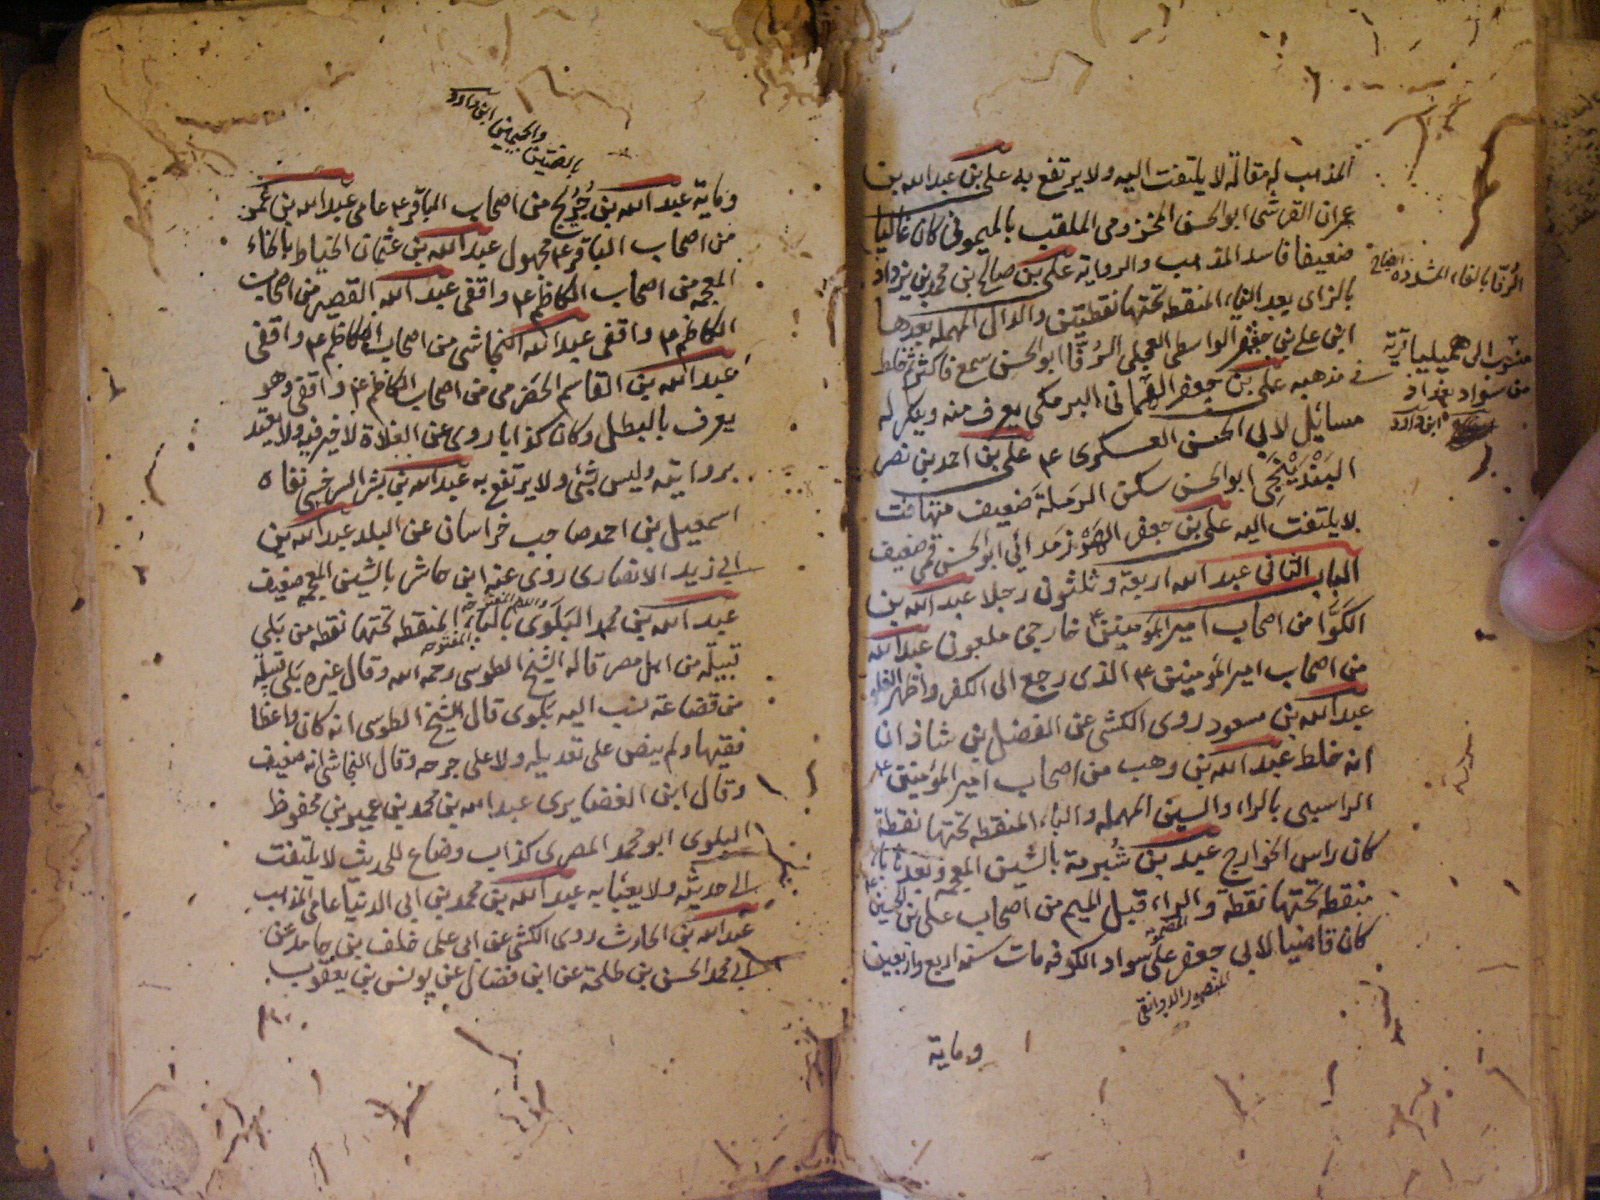 المذهب له مقالة لا يلتفت اليه ولا يرتفع به علي بن عبد الله بن
عمران القرشي ابو الحسن المخزومي الملقب بالميموني كان غاليا
ضعيفا فاسد المذهب والرواية علي بن صالح بن محمد بن يزداد
بالزاي بعد الياء المنقطة تحتها نقطتين والدال المهملة بعدها
ابن علي بن جعفر الواسطي العجلي الرفا ابو الحسن سمع فاكثر ثم خلط
في مذهبه علي بن جعفر الهماني البرمكي يعرف منه وينكر له
مسائل لابي الحسن العسكري ع علي بن احمد بن نصر
البندنيجي ابو الحسن سكن الرملة ضعيف متهافت
لا يلتفت اليه علي بن جعفر ابو الحسن قمي ضعيف
الباب الثاني عبد الله اربعة وثلثون رجلا عبد الله بن
الكوا من اصحاب امير المؤمنين ع خارجي ملعون عبد الله
من اصحاب امير المؤمنين ع الذي رجع الى الكفر واظهر الغلو
عبد الله بن مسعود روى الكشي عن الفضل بن شاذان
انه خلط عبد الله بن وهب من اصحاب امير المؤمنين ع
الراسبي بالراء والسين المهملة والباء المنقطة تحتها نقطة
كان راس الخوارج عبد بن شبرمة بالشين المعجمة وبعدها باء
منقطة تحتها نقطة والراء قبل الميم من اصحاب علي بن الحسين ع
كان قاضيا لابي جعفر على سواد الكوفه مات سنة اربع واربعين
المنصور الدوانقي
وماية
الرفا بالفاء المشدده
منسوب الى همينيا قرية
من سواد بغداد
ابن داود
بالضمتين والجيمين ابن داود
وماية عبد الله بن جريج من اصحاب الباقر ع عامي عبد الله بن عمر
من اصحاب الباقر ع مجهول عبد الله بن عثمان الخياط بالخاء
المعجمة من اصحاب الكاظم ع واقفي عبد الله القصير من اصحاب
الكاظم ع واقفي عبد الله النجاشي من اصحاب الكاظم ع واقفي
عبد الله بن القاسم الحضرمي من اصحاب الكاظم ع واقفي وهو
يعرف بالبطل وكان كذابا روى عن الغلاة لا خير فيه ولا يعتد
بروايته وليس بشئ ولا يرتفع به عبد الله بن بشر السرخسي نفاه
اسمعيل بن احمد صاحب خراسان عن البلد عبد الله بن
ابي زيد الانصاري روى عنه ابن حاشر بالشين المعجمة ضعيف
عبد الله بن محمد البلوي بالباء المنقطة تحتها نقطة من بلي
قبيلة من اهل مصر قاله الشيخ الطوسي رحمه الله وقال غيره بلي قبيلة
من قضاعة نسب اليه بلوي قال الشيخ الطوسي انه كان واعظا
فقيها ولم ينص على تعديله ولا على جرحه وقال النجاشي انه ضعيف
وقال ابن الغضايري عبد الله بن محمد بن عمير بن محفوظ
البلوي ابو محمد المصري كذاب وضاع للحديث لا يلتفت
الى حديثه ولا يعبا به عبد الله بن محمد بن ابي الدنيا عامي المذهب
عبد الله بن الحارث روى الكشي عن ابي علي خلف بن حامد عن
ابي محمد الحسن بن طلحة عن ابن فضال عن يونس بن يعقوب